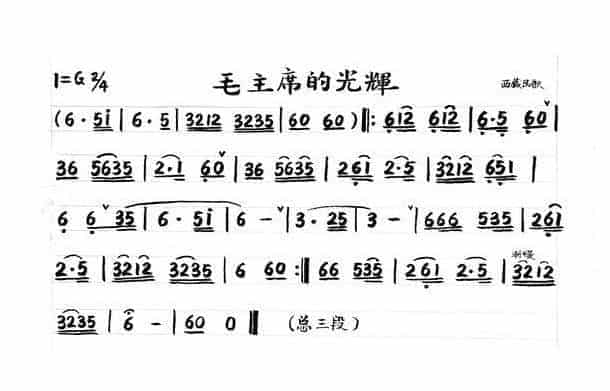 1=G 2/4 毛主席的光輝 西藏民歌
(6·5i|6·5|3212 3235|60 60)‖:612 612|6·5 60ˇ|
36 5635|2·1 60ˇ|36 5635|261 2·5|3212 651|
6 6ˇ35|6·5i|6 -ˇ|3·25|3 -ˇ|666 535|261
2·5|3212 3235|6 60:‖66 535|261 2·5|渐慢3212
3235|6 -|60 0‖ (总三段)